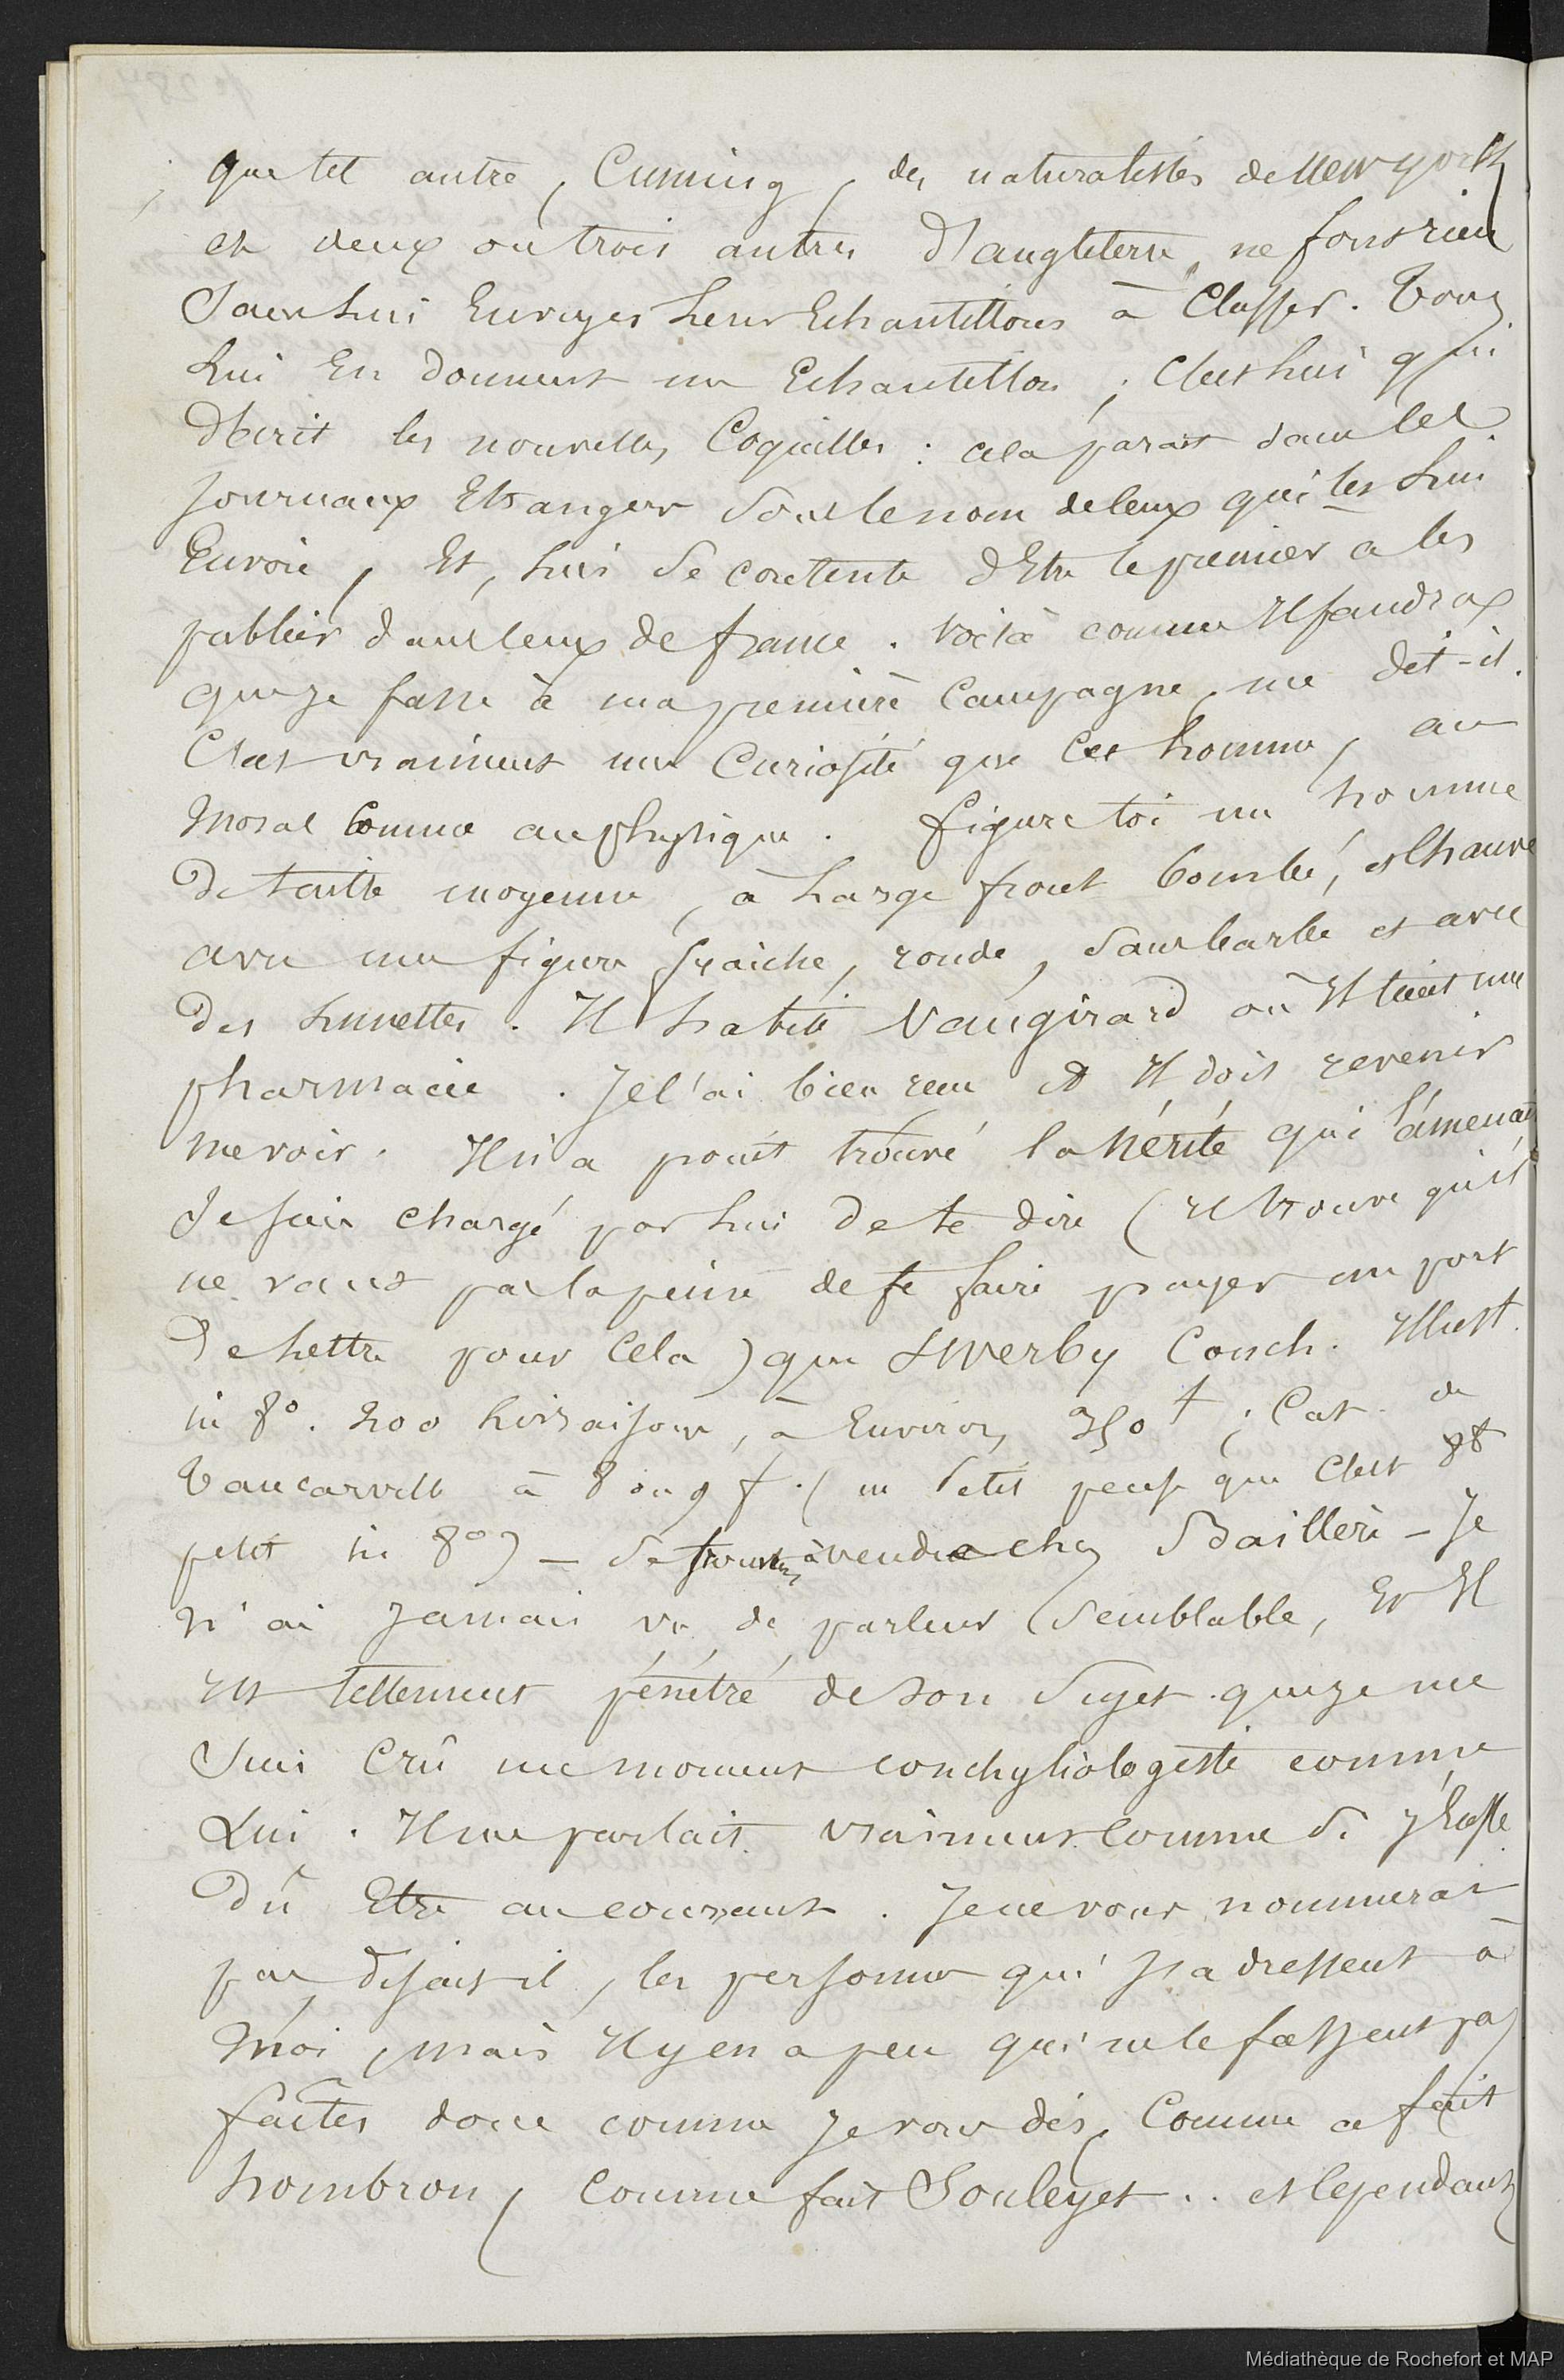 que tel autre, Cuming, des naturalistes de New york
et deux ou trois autres d'angleterre, ne font rien
Sans lui Envoyer leur Echantillons à Classer. Tous
Lui En donnent un Echantillon; C'est lui qui
décrit les nouvelles Coquilles : cela parait dans les
Journaux Etrangers Sous le nom de ceux qui les lui
Envoie, Et, lui Se contente d'Etre le premier a les
publier dans ceux de france. Voilà comme Il faudra
que je fasse à ma première Campagne, me dit-il.
C'est vraiment une Curiosité que cet homme, au
Moral Comme au physique. figure toi un homme
De taille moyenne, à large front bombé, et Chauve
avec une figure fraiche, ronde, Sans barbe et avec
Des lunettes. Il habite Vaugirard où Il tient une
pharmacie. Je l'ai bien reçu et Il doit revenir
me voir. Il n'a point trouvé la nérite qui l'amenait
Je suis chargé par lui de te dire (Il trouve qu'il
ne vaut pas la peine de te faire payer un port
De lettre pour Cela) que Swerby Conch. Illust.
in 8°. 200 livraisons, à Environ 350 f; Cat. de
Tancarville à 8 ou 9 f. (un Petit
petit in 8°) — Se trouvent à vendre chez Baillere — Je
n'ai Jamais vu de parleur Semblable, Et Il
Est tellement pénétré de son Sujet que je me
Suis Crû un moment conchyliologiste comme
Lui. Il me parlait vraiment Comme Si J'Eusse
Dû Etre au courant. Je ne vous nommerai
pas disait-il, les personnes qui s'adressent à
Moi, mais Il y en a peu qui ne le fassent pas
faites donc comme Je vous dis, Comme a fait
hombron, Comme fait Souleyet.. et Cependant
Médiathèque de Rochefort et MAP